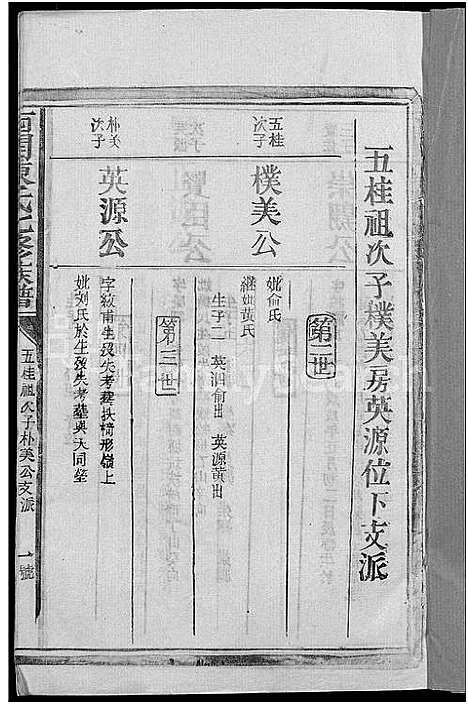 五桂祖次子樸美房英源位下支派
第二世
五桂次子
樸美公
妣俞氏
繼妣黄氏
生子二 英泗俞出 英源黄出
第三世
朴美次子
英源公
字紋甫生歿失考葬扶檮形嶺上
妣刘氏於生歿失考葬與夫同塋
氏七修族譜
五桂祖次子朴美公支派
一號